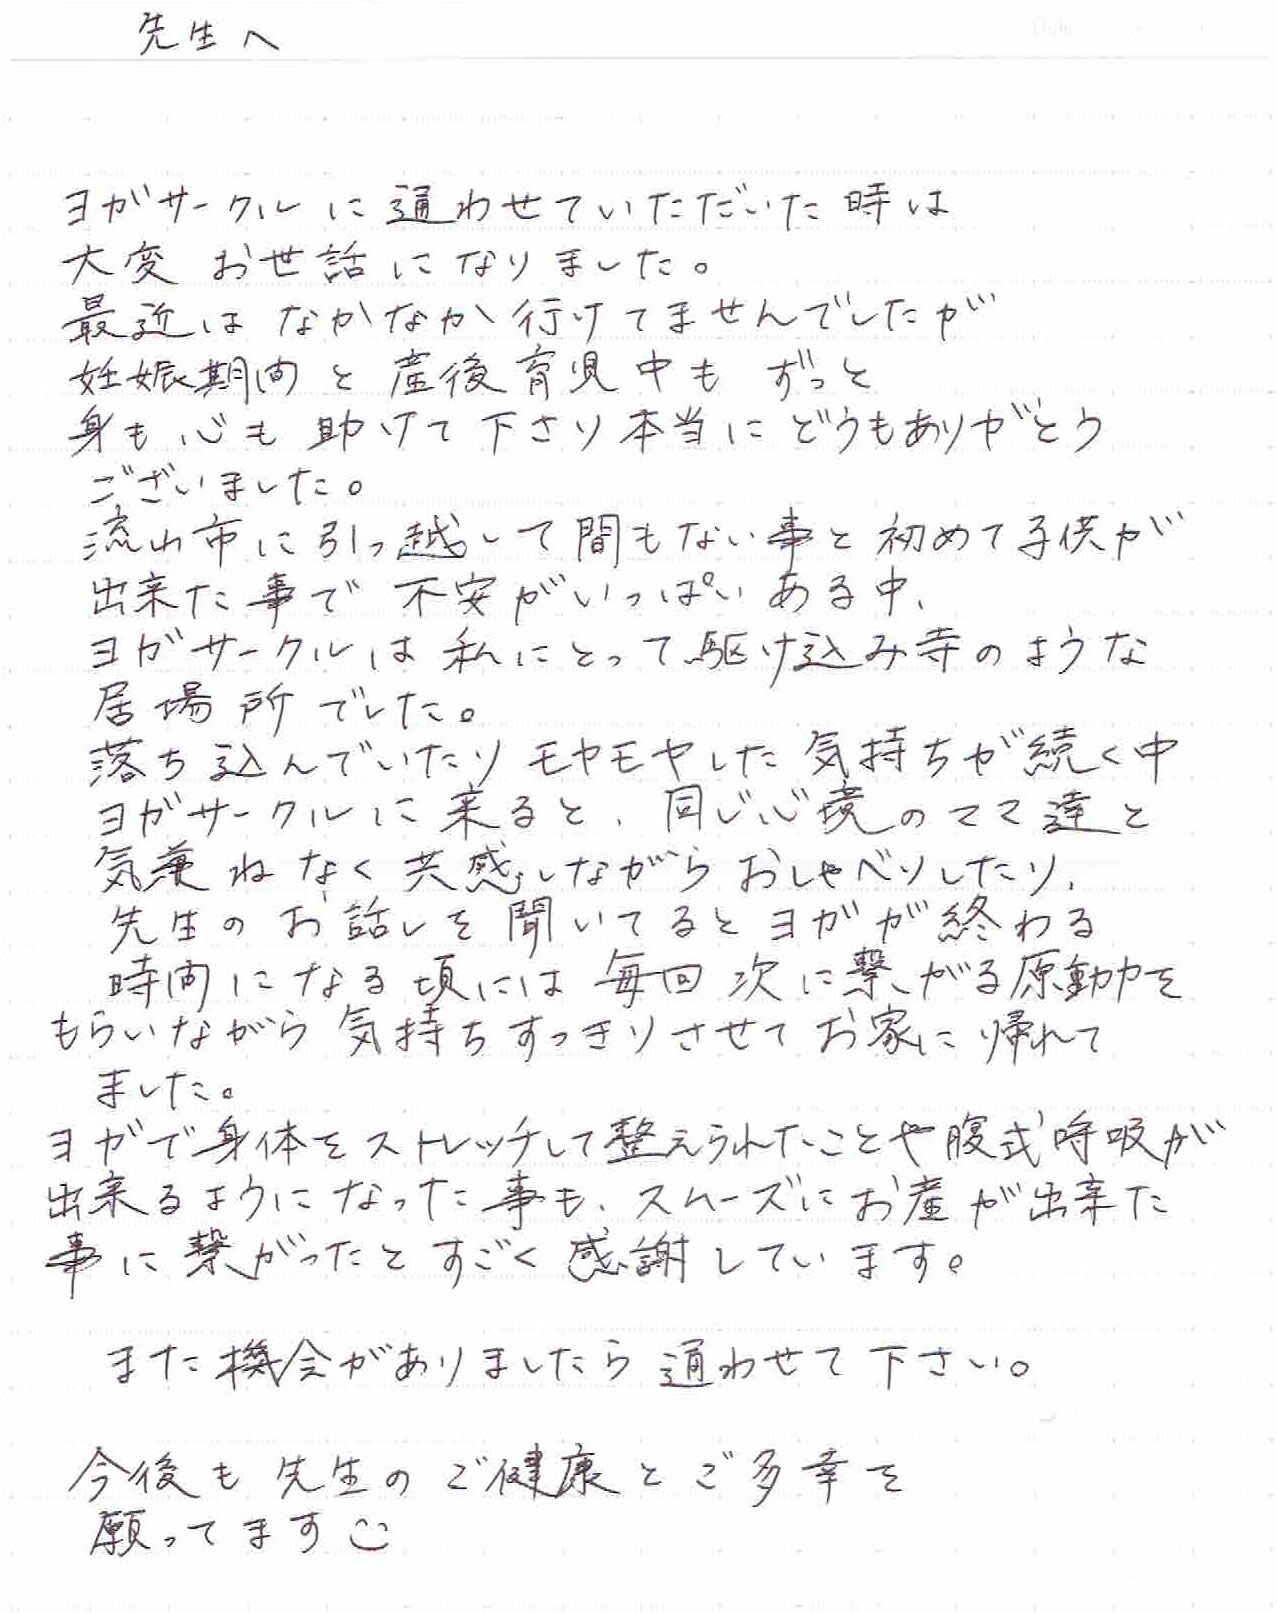 先生へ
ヨガサークルに通わせていただいた時は
大変お世話になりました。
最近はなかなか行けてませんでしたが
妊娠期間と産後育児中もずっと
身も心も助けて下さり本当にどうもありがとう
ございました。
流山市に引っ越して間もない事と初めて子供が
出来た事で不安がいっぱいある中、
ヨガサークルは私にとって駆け込み寺のような
居場所でした。
落ち込んでいたりモヤモヤした気持ちが続く中
ヨガサークルに来ると、同じ心境のママ達と
気兼ねなく共感しながらおしゃべりしたり、
先生のお話しを聞いてるとヨガが終わる
時間になる頃には毎回次に繋がる原動力を
もらいながら気持ちすっきりさせてお家に帰れて
ました。
ヨガで身体をストレッチして整えられたことや腹式呼吸が
出来るようになった事も、スムーズにお産が出来た
事に繋がったとすごく感謝しています。
また機会がありましたら通わせて下さい。
今後も先生のご健康とご多幸を
願ってます